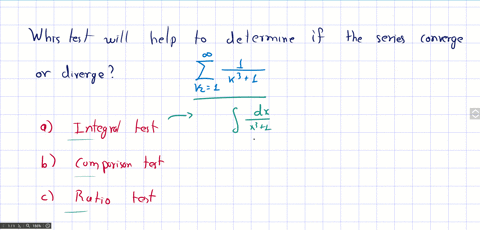 Whis test will help to determine if the series converge
or diverge?
∞
∑ 1/(k³+1)
k=1
a) Integral test → ∫ dx/(x³+1)
b) Comparison test
c) Ratio test